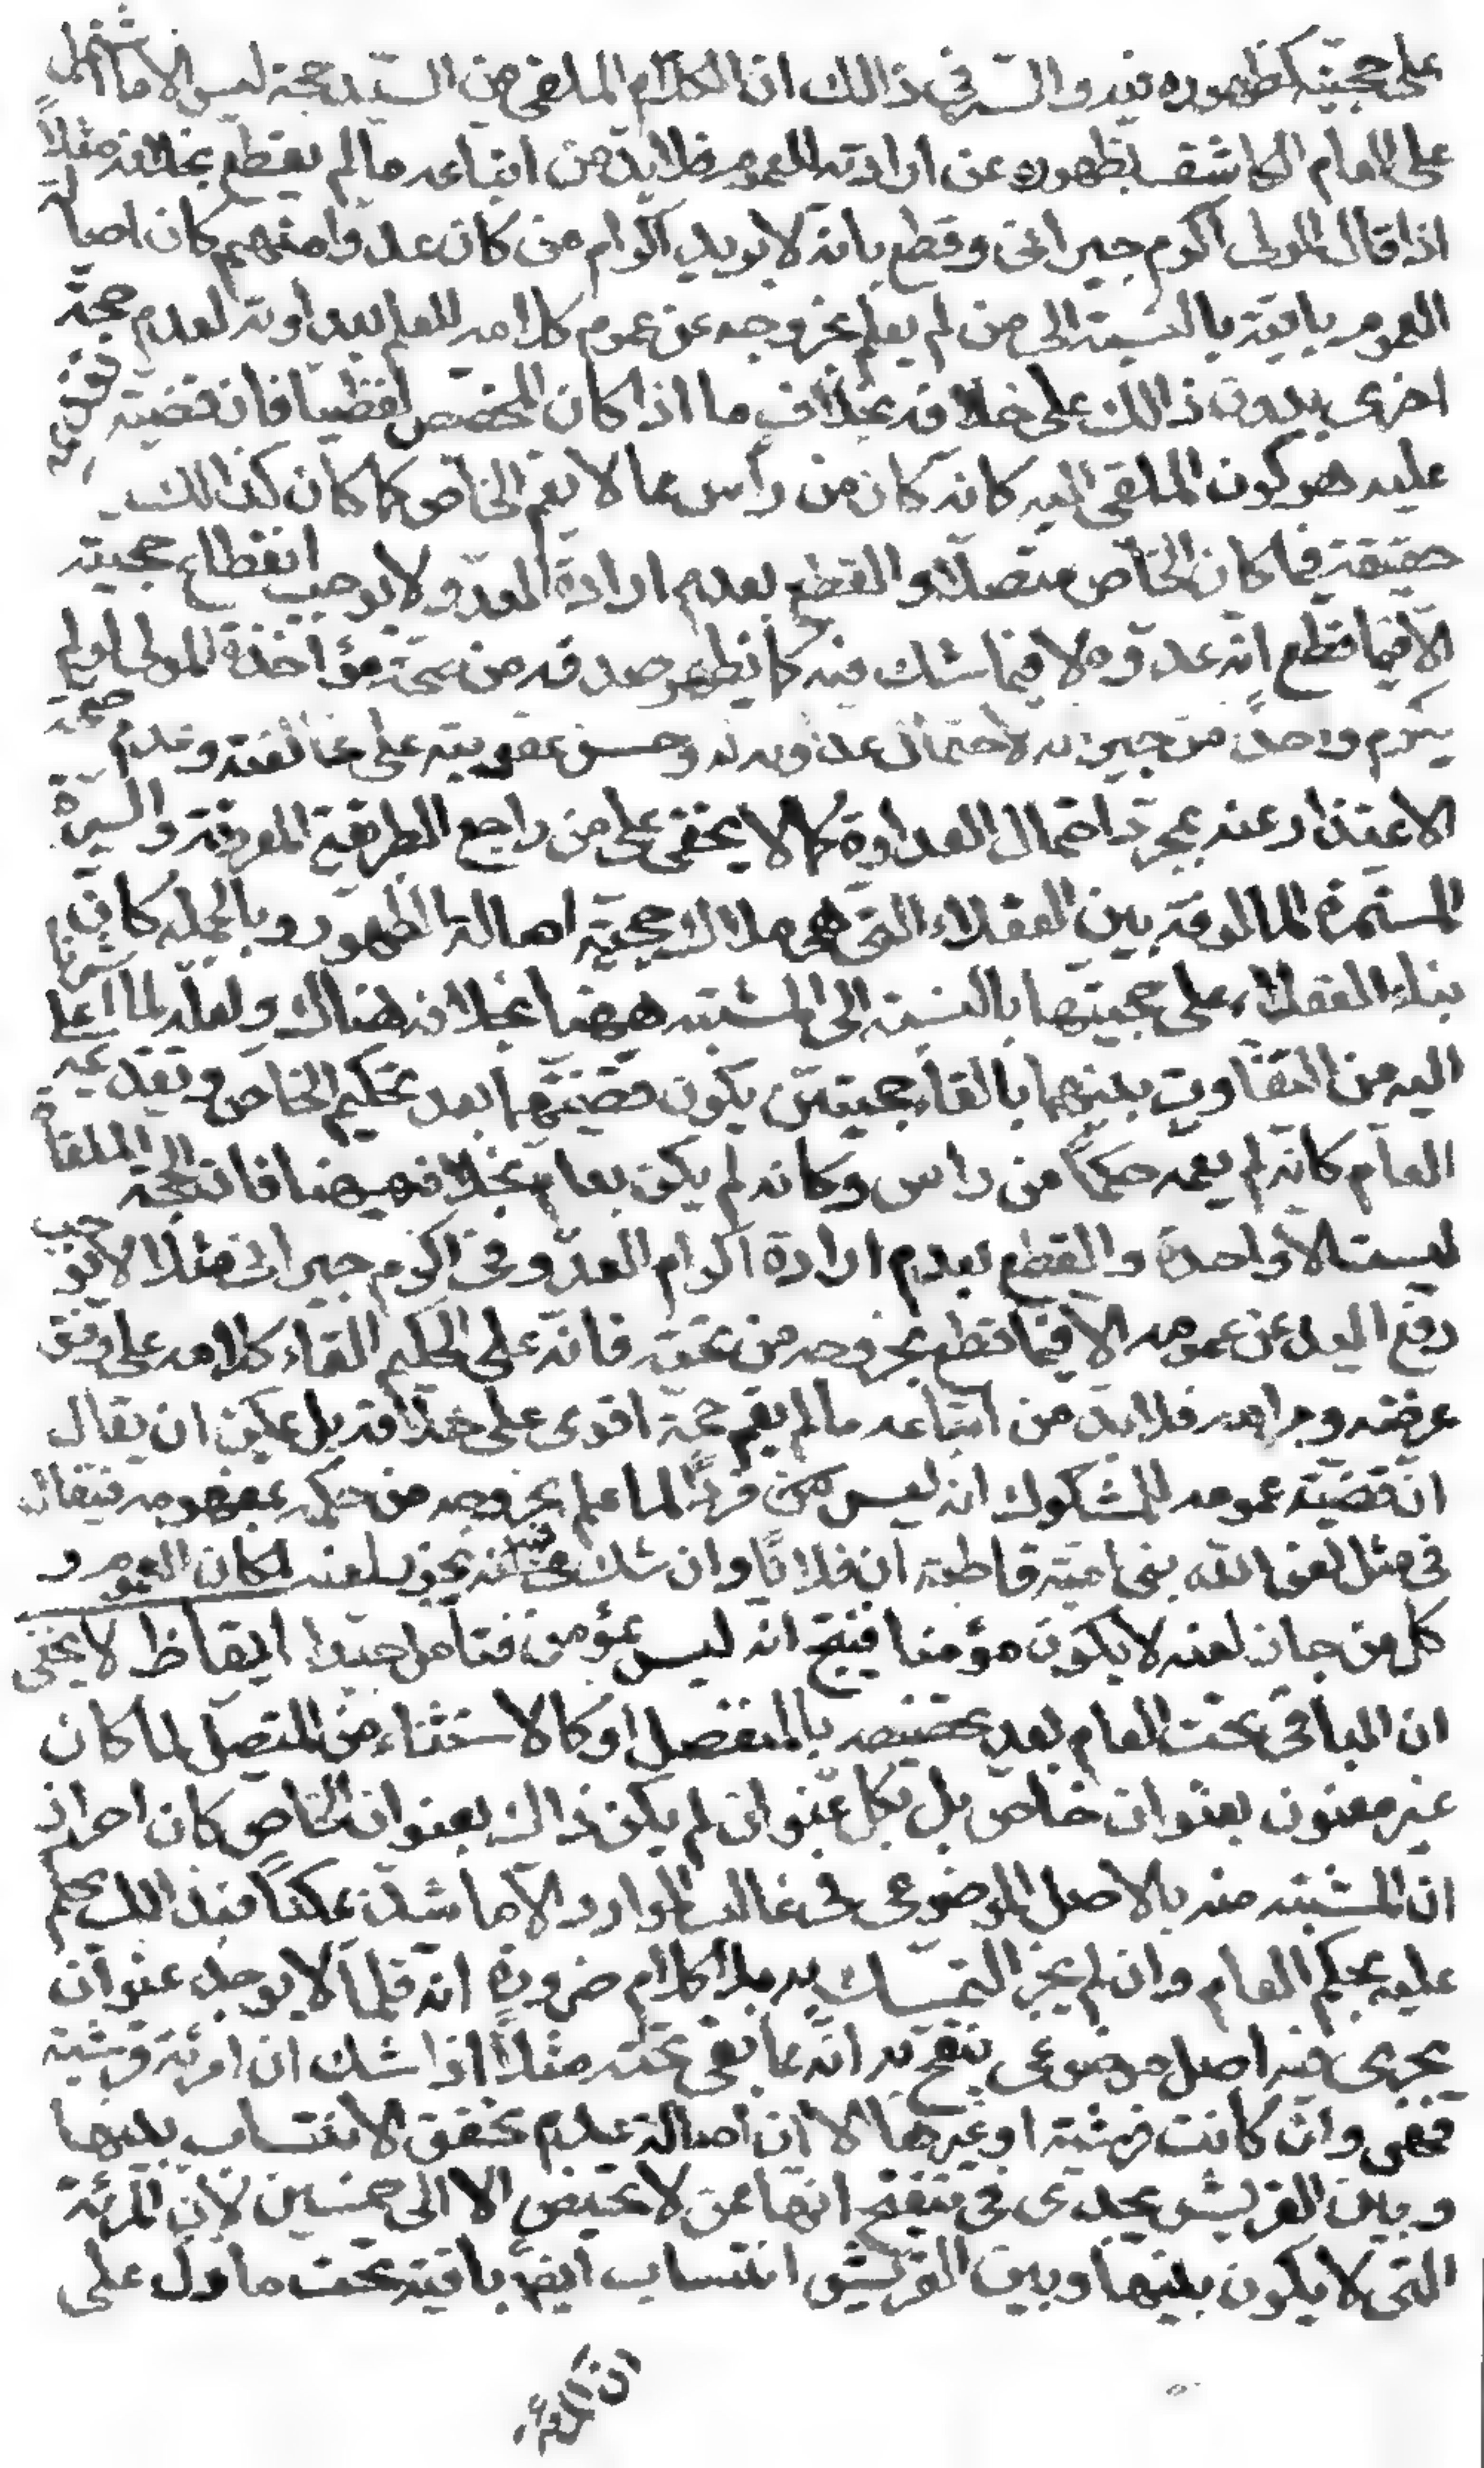 على حجيته كظهوره فيه والسر في ذالك ان الكلام الملقى من السيد حجة ليس الا ما اشتمل
على العام الكاشف بظهوره عن ارادته للعموم فلا بد من اتباعه ما لم يقطع بخلافه مثلاً
اذا قال المولى اكرم جيراني وقطع بانه لا يريد اكرام من كان عدوا منهم كان اصالة
العموم باقية بالنسبة الى من لم يعلم بخروجه عن عموم كلامه للعلم بعداوته لعدم حجة
اخرى بدون ذالك على خلافه بخلاف ما اذا كان المخصص لفظيا فان قضية تقديمه
عليه هو كون الملقى اليه كانه كان من رأس عما لا يعم الخاص كما كان كذالك
حقيقة فيما كان الخاص متصلا والقطع بعدم ارادة العدو لا يوجب انقطاع حجيته
الا فيما قطع انه عدوه لا فيما شك فيه كما يظهر صدقه من صحة مؤاخذة المولى لو لم
يكرم واحدا من جيرانه لاحتمال عداوته له وحسن عقوبته على مخالفته وعدم صحة
الاعتذار عنه بمجرد احتمال العداوة كما لا يخفى على من راجع الطريقة المعروفة والسيرة
المستمرة المالوفة بين العقلاء التي هى ملاك حجية اصالة الظهور وبالجملة كان
بناء العقلاء على حجيتها بالنسبة الى المشتبه ههنا بخلافه هناك ولعله لما اشرنا
اليه من التفاوت بينهما بالقاء حجيتين يكون قضيتهما بعد تحكيم الخاص وتقديمه على
العام كانه لم يعمه حكماً من راس وكانه لم يكن بعام بخلافه ههنا فان الحجة الملقاة
ليست الا واحدة والقطع بعدم ارادة اكرام العدو في اكرم جيراني مثلا لا يوجب
رفع اليد عن عمومه الا فيما قطع بخروجه من تحته فانه على الحكيم القاء كلامه على وفق
غرضه ومرامه فلا بد من اتباعه ما لم يقم حجة اقوى على خلافه بل يمكن ان يقال
ان قضية عمومه للمشكوك انه ليس فرداً لما علم بخروجه من حكمه بمفهومه فيقال
في مثل لعن الله بنى امية قاطبة ان فلانًا وان شك في ايمانه يجوز لعنه لمكان العموم و
كل من جاز لعنه لا يكون مؤمنا فينتج انه ليس بمؤمن فتامل جيدا ايقاظ لا يخفى
ان الباقي تحت العام بعد تخصيصه بالمنفصل او كالاستثناء من المتصل لما كان
غير معنون بعنوان خاص بل بكل عنوان لم يكن ذاك بعنوان الخاص كان احراز
ان المشتبه منه بالاصل الموضوعى في غالب الموارد الا ما شذ ممكناً فبذالك يحكم
عليه بحكم العام وان لم يجز التمسك به بلا كلام ضرورة انه قلما لا يوجد عنوان
يجرى فيه اصل موضوعى ينقح به انه مما بقى تحته مثلاً اذا شك ان امرئة قرشية
فهي وان كانت قرشية او غيرها الا ان اصالة عدم تحقق الانتساب بينها
وبين القريش يجدى في تنقيح انها ممن لا تحيض الا الى خمسين لان المرئة
التى لا يكون بينها وبين القريش انتساب ايض باقية تحت ما دل على
ان المرئة